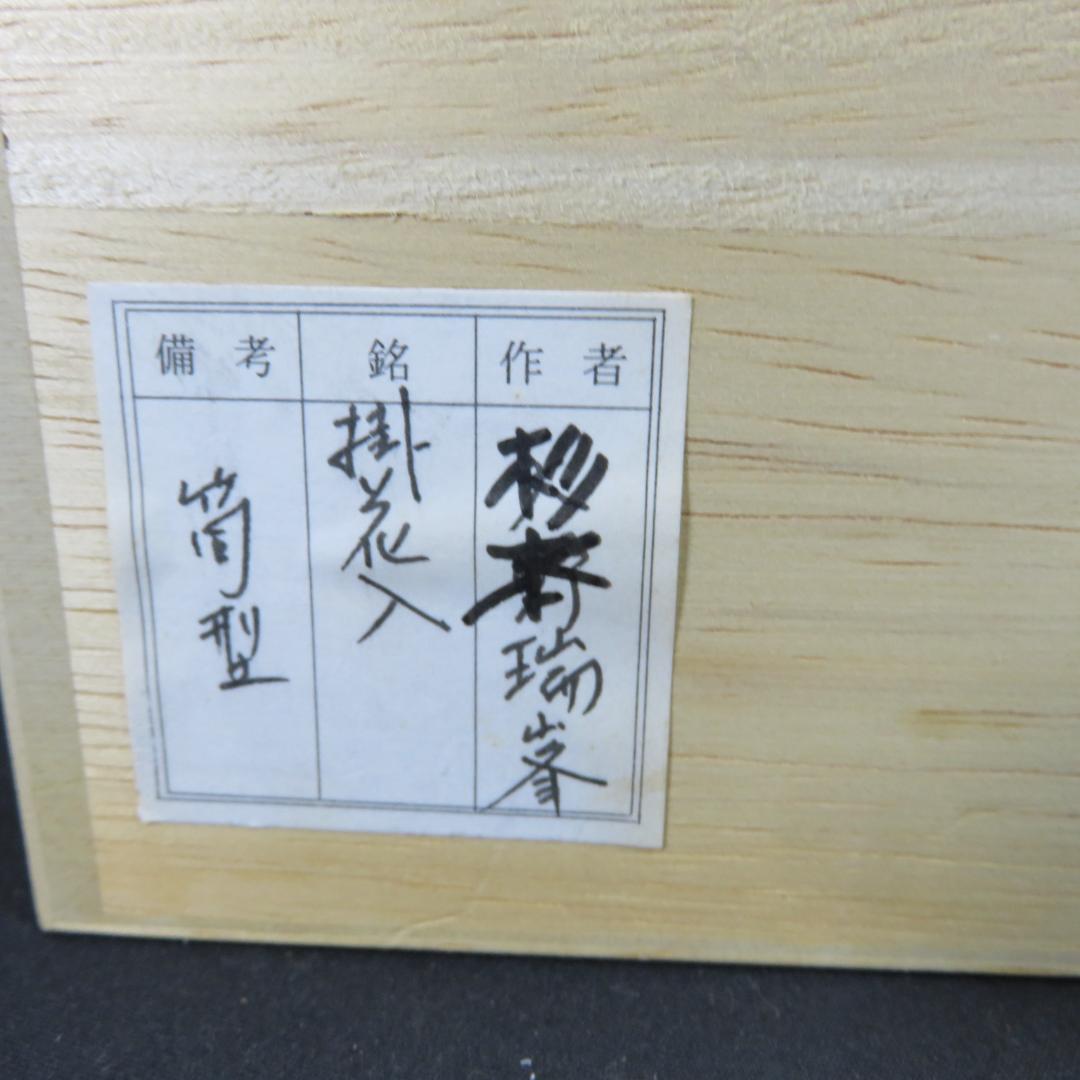 作者
杉瑞峯
銘
掛花入
備考
筒型